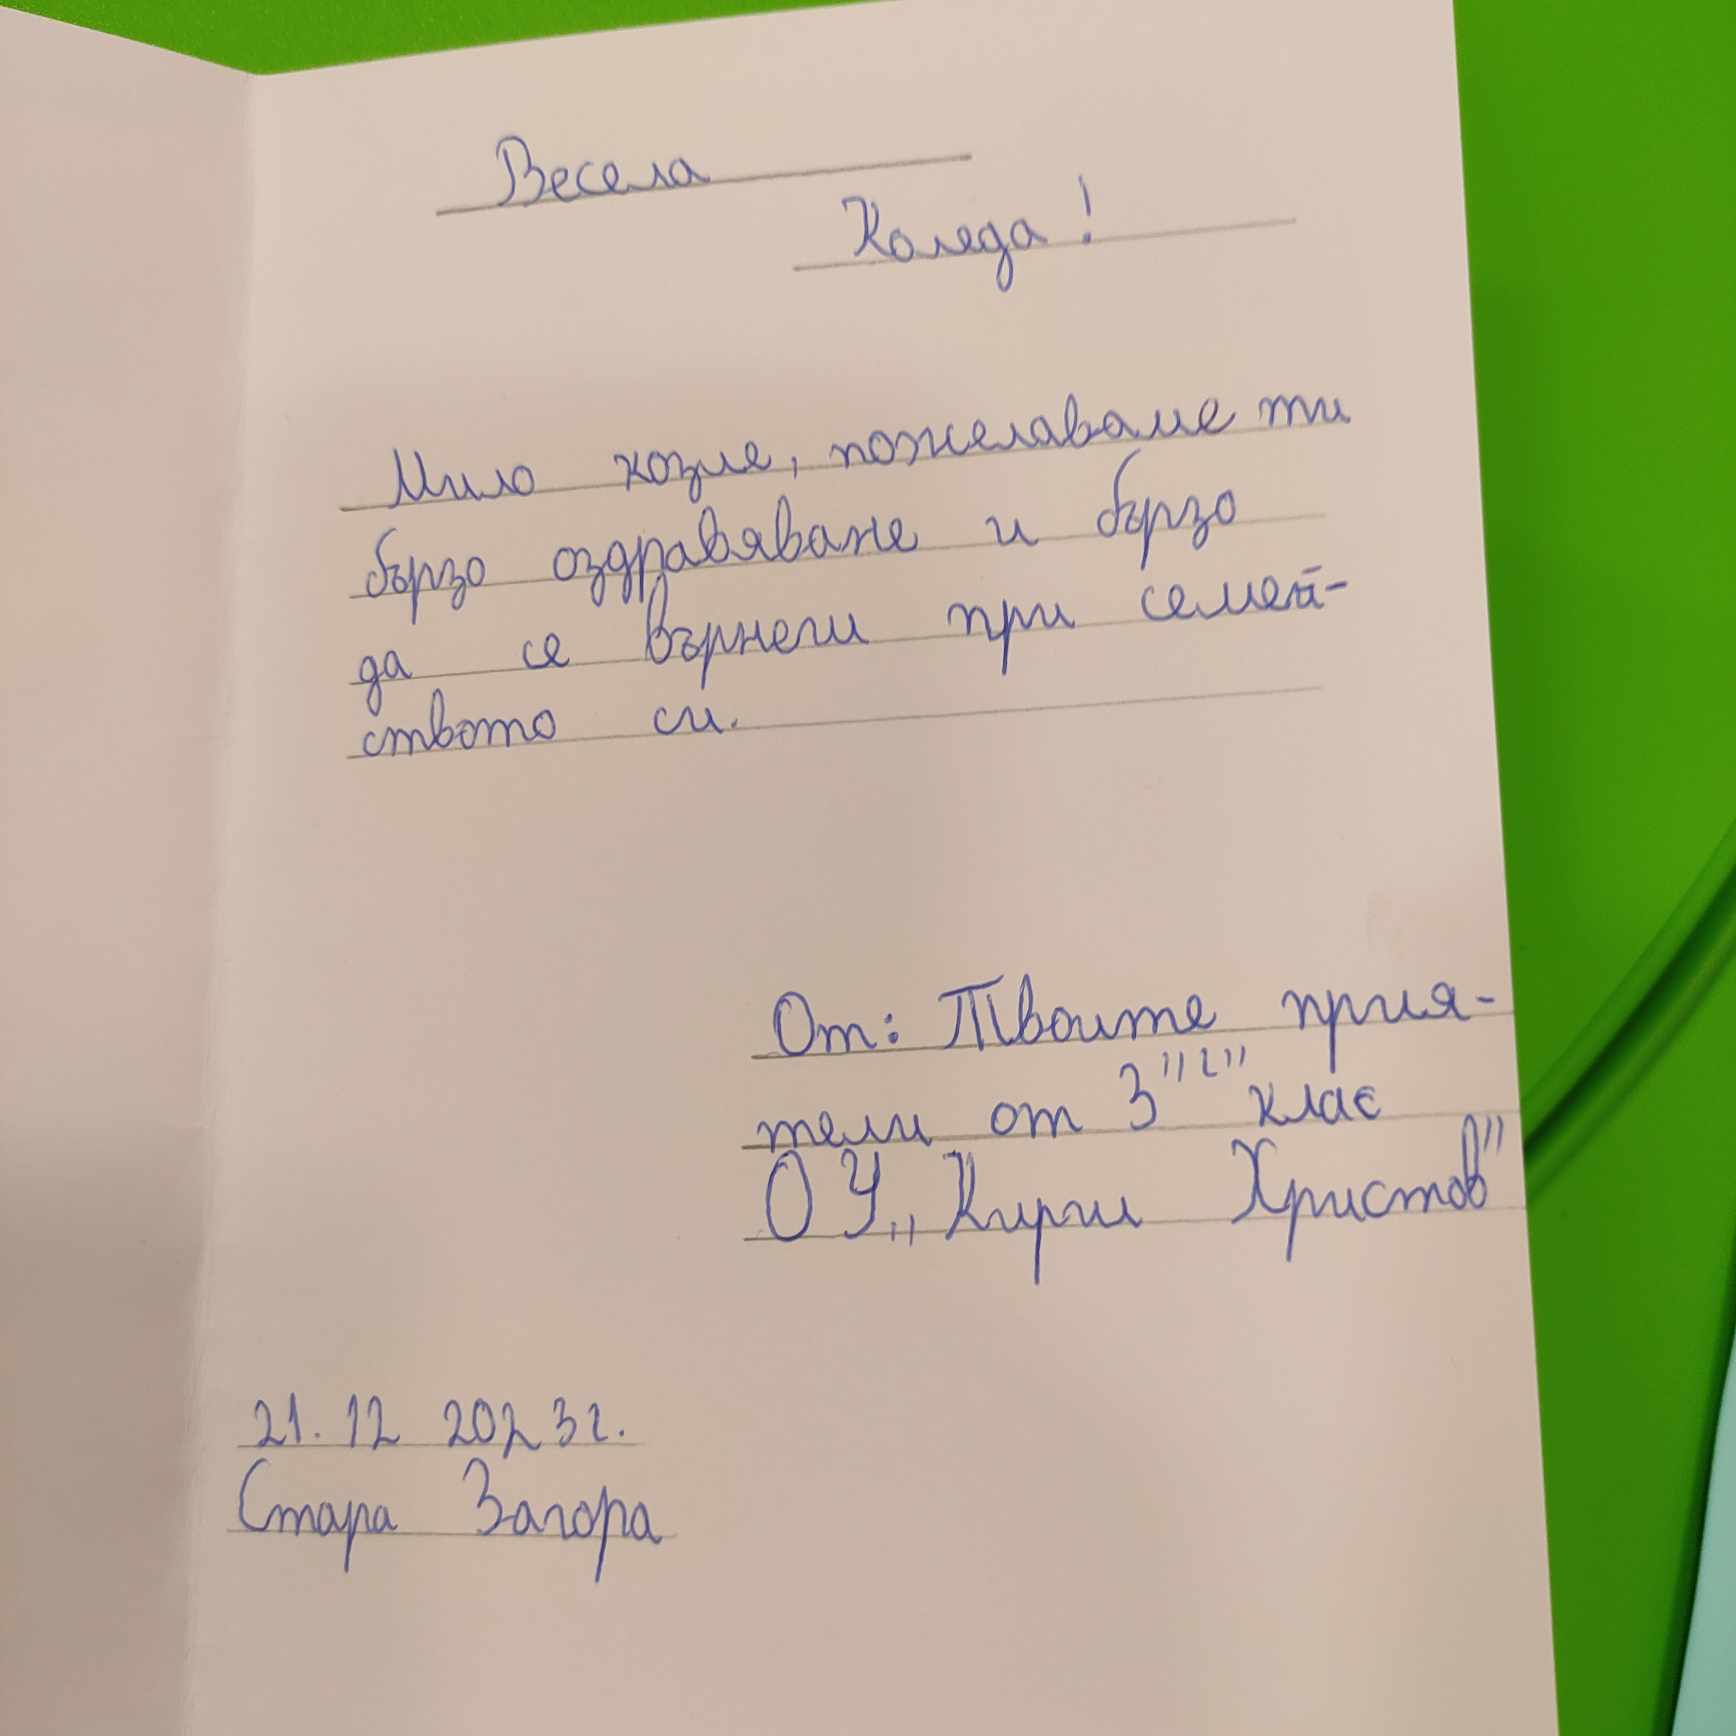 Весела
Коледа!
Мило козле, пожелаваме ти
бързо оздравяване и бързо
да се върнеш при семей-
ството си.
От: Твоите прия-
тели от 3 "г" клас
ОУ „Кирил Христов"
21. 12 2023г.
Стара Загора